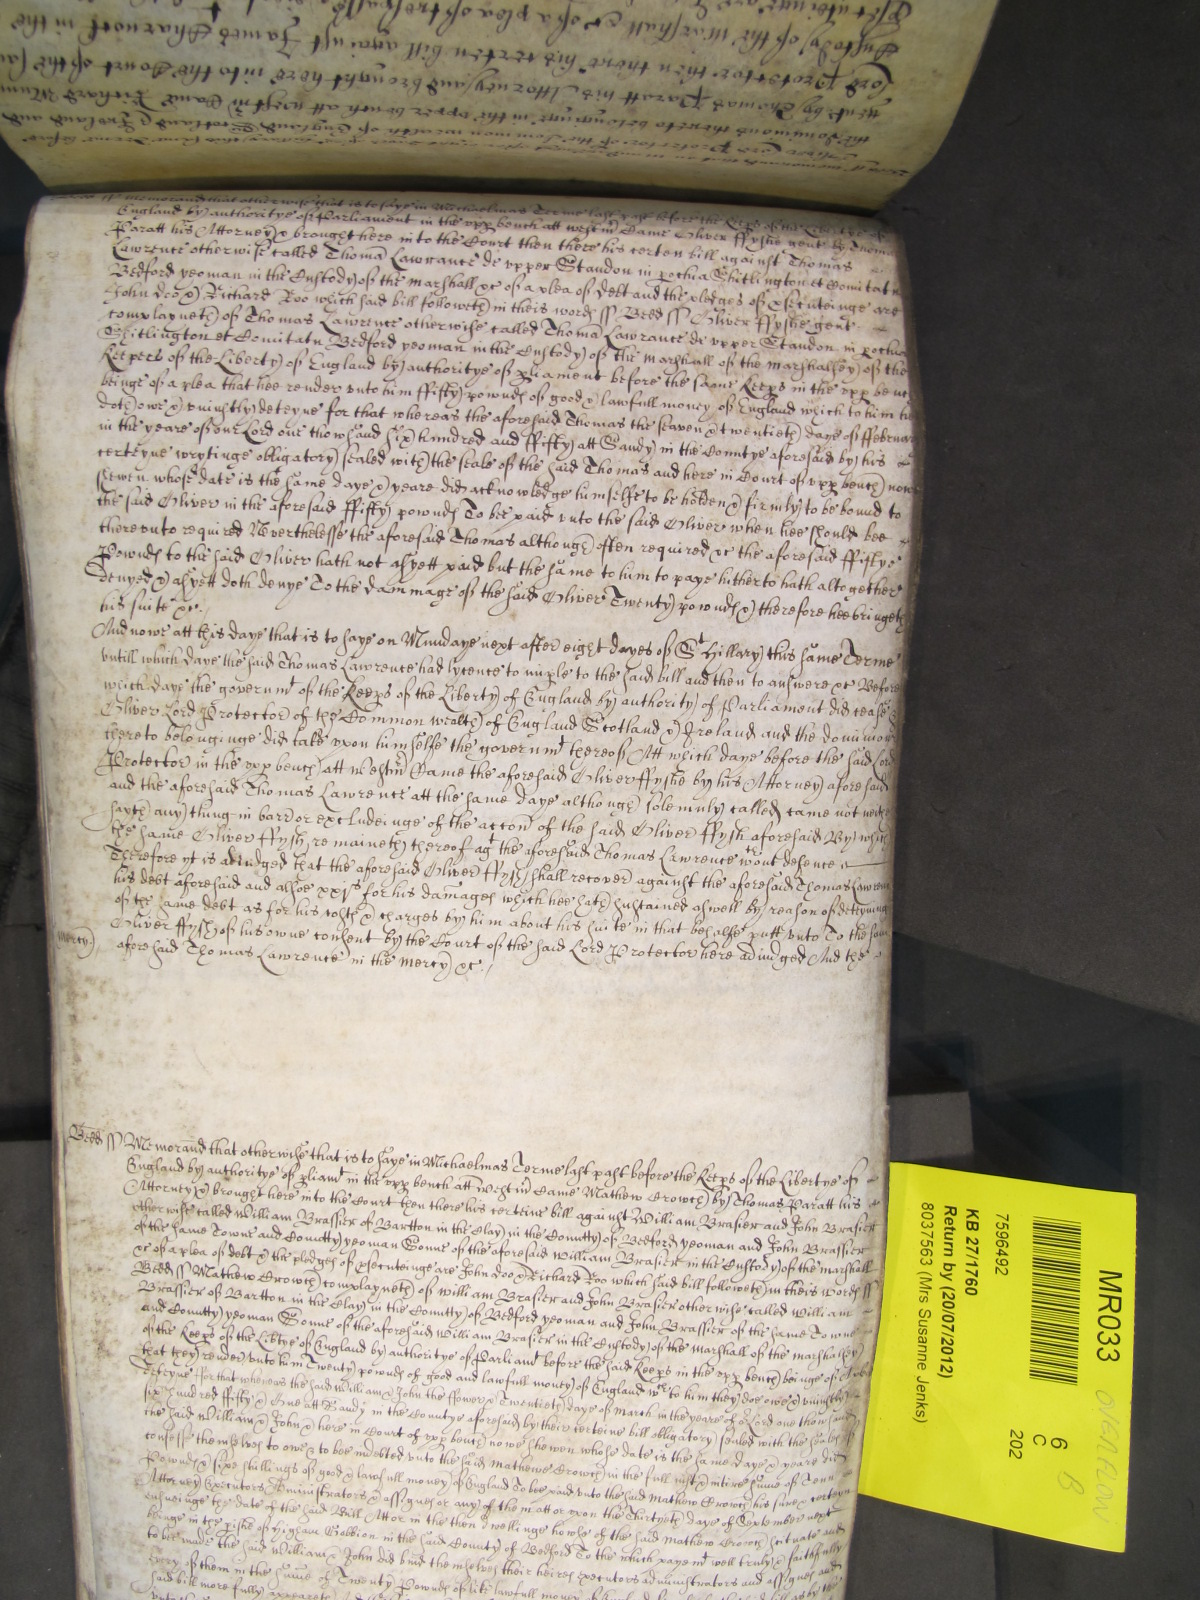 Memorand that otherwise that is to saye in Michaelmas Terme last past before the Keeps of the Libertye of
England by authoritye of Parliament in the vpp bench att westmr Came Oliver ffyshe gent by Thomas
Paratt his Attorney & brought here in to the Court then there his certen bill against Thomas
Lawrence otherwise called Thoma Lawrance de vpper Standon in pochia Shitlington et Comitat
Bedford yeoman in the Custody of the marshall &c of a plea of debt and the pledges of executeinge are
John doo & Richard Roo which said bill followeth in theis words ss Bedd ss Oliver ffyshe gent
complayneth of Thomas Lawrence otherwise called Thoma Lawrance de vpper Standon in pochia
Shitlington et Comitatu Bedford yeoman in the Custody of the marshall of the marshallsey of the
Keepers of the Liberty of England by authoritye of pliament before the same Keeps in the vpp bench
beinge of a plea that hee render vnto him ffifty pownds of good & lawfull money of England which to him hee
doth owe & vniustly deteyne for that whereas the aforesaid Thomas the seaven & twentieth daye of ffebruary
in the yeare of our Lord one thowsand six hundred and ffifty att Sandy in the Countye aforesaid by his
certeyne wrytinge obligatory sealed with the seale of the said Thomas and here in Court of vpp bench now
shewen whose date is the same daye & yeare did acknowledge himselfe to be holden & firmly to be bound to
the said Oliver in the aforesaid ffifty pownds To bee paid vnto the said Oliver when hee should bee
therevnto required Neverthelesse the aforesaid Thomas although often required &c the aforesaid ffiftye
Pownds to the said Oliver hath not as yett paid but the same to him to paye hitherto hath altogether
denyed & as yett doth denye To the dammage of the said Oliver Twenty pownds & therefore hee bringeth
his suite &c.
And nowe att this daye that is to saye on Mundaye next after eight dayes of St Hillary this same Terme
vntill which daye the said Thomas Lawrence had lycence to imple to the said bill and then to answere &c Before
which daye the governmt of the Keeps of the Liberty of England by authority of Parliament did cease &
Oliver Lord Protector of the Common wealth of England Scotland & Ireland and the dominions
thereto belonginge did take vpon himselfe the governmt thereof Att which daye before the said Lord
Protector in the vpp bench att Westmr Came the aforesaid Oliver ffyshe by his Attorney aforesaid
and the aforesaid Thomas Lawrence att the same daye although solemnly called came not neither
sayth any thing in barr or excludeinge of the accon of the said Oliver ffysh aforesaid By which
the same Oliver ffysh remaineth thereof agt the aforesaid Thomas Lawrence wthout defence &
Therefore yt is adiudged that the aforesaid Oliver ffysh shall recover against the aforesaid Thomas Lawrence
his debt aforesaid and alsoe xxjs for his damages which hee hath sustained aswell by reason of deteyning
of the same debt as for his costs & charges by him about his suite in that behalfe putt vnto To the said
Oliver ffysh of his owne consent by the Court of the said Lord Protector here adiudged And the
mercy. aforesaid Thomas Lawrence in the mercy &c.
Bedd ss Memorand that otherwise that is to saye in Michaelmas Terme last past before the Keeps of the Libertye of
England by authoritye of pliamt in the vpp bench att westmr Came Mathew Crowch by Thomas Paratt his
Attorney & brought here into the Court then there his certeine bill against William Brasier and John Brasier
otherwise called William Brassier of Bartton in the Clay in the Countty of Bedford yeoman and John Brassier
of the same Towne and Countty yeoman Sonne of the aforesaid William Brasier in the Custody of the marshall
&c of a plea of debt & the pledges of executeinge are John doo & Richard Roo which said bill followeth in theis words ss
Bedd ss Mathew Crowch complayneth of William Brasier and John Brasier otherwise called William
Brassier of Bartton in the Clay in the Countty of Bedford yeoman and John Brassier of the same Towne
and Countty yeoman Sonne of the aforesaid William Brasier in the Custody of the marshall of the marshallsey
of the Keeps of the Libtye of England by authoritye of Parliamt before the said Keeps in the vpp bench beinge of a plea
that they render vnto him Twenty pownds of good and lawfull monty of England wch to him they doe owe & vniustly
deteyne ffor that whereas the said William & John the ffower & Twentieth daye of march in the yeare of or Lord one thowsand
six hundred ffifty & One att Sandy in the Countye aforesaid by their certeine bill obligatory sealed with the seales of
the said William & John & here in Court of vpp bench nowe shewen whose date is the same daye & yeare did
confesse themselves to owe & to bee indebted vnto the said Mathewe Crowch in the full iust & intire sume of Tenn
Pownds & sixe shillings of good & lawfull money of England To bee paid vnto the said Mathew Crowch his sure & certeyn
Attorney Executors Administrators & assignes or any of them att or vpon the Thirtyeth daye of September next
ensueinge the date of the said Bill Attor in the then dwellinge howse of the said Mathew Crowch scituate and
beinge in the pishe of Higham Gobbion in the said County of Bedford To the which paymt well truly & faithfully
to be made the said William & John did bind themselves their heires executors administrators and assignes and
every of them in the sume of Twenty Pownds of like lawfull money of England
said bill more fully appeareth
MR033
7596492
6
C
202
KB 27/1760
Return by (20/07/2012)
8037563 (Mrs Susanne Jenks)
OVERFLOW
B